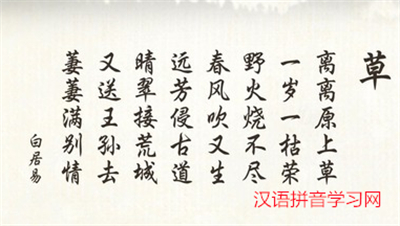 草
离离原上草
一岁一枯荣
野火烧不尽
春风吹又生
远芳侵古道
晴翠接荒城
又送王孙去
萋萋满别情
白居易
汉语拼音学习网